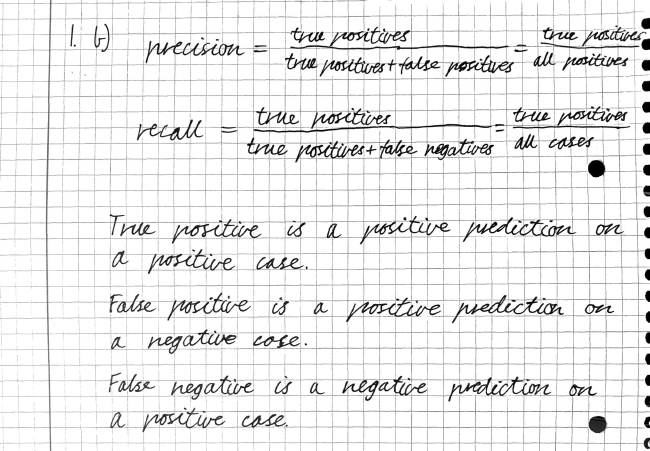 1. b) precision = true positives / true positives + false positives = true positives / all positives
recall = true positives / true positives + false negatives = true positives / all cases
True positive is a positive prediction on
a positive case.
False positive is a positive prediction on
a negative case.
False negative is a negative prediction on
a positive case.